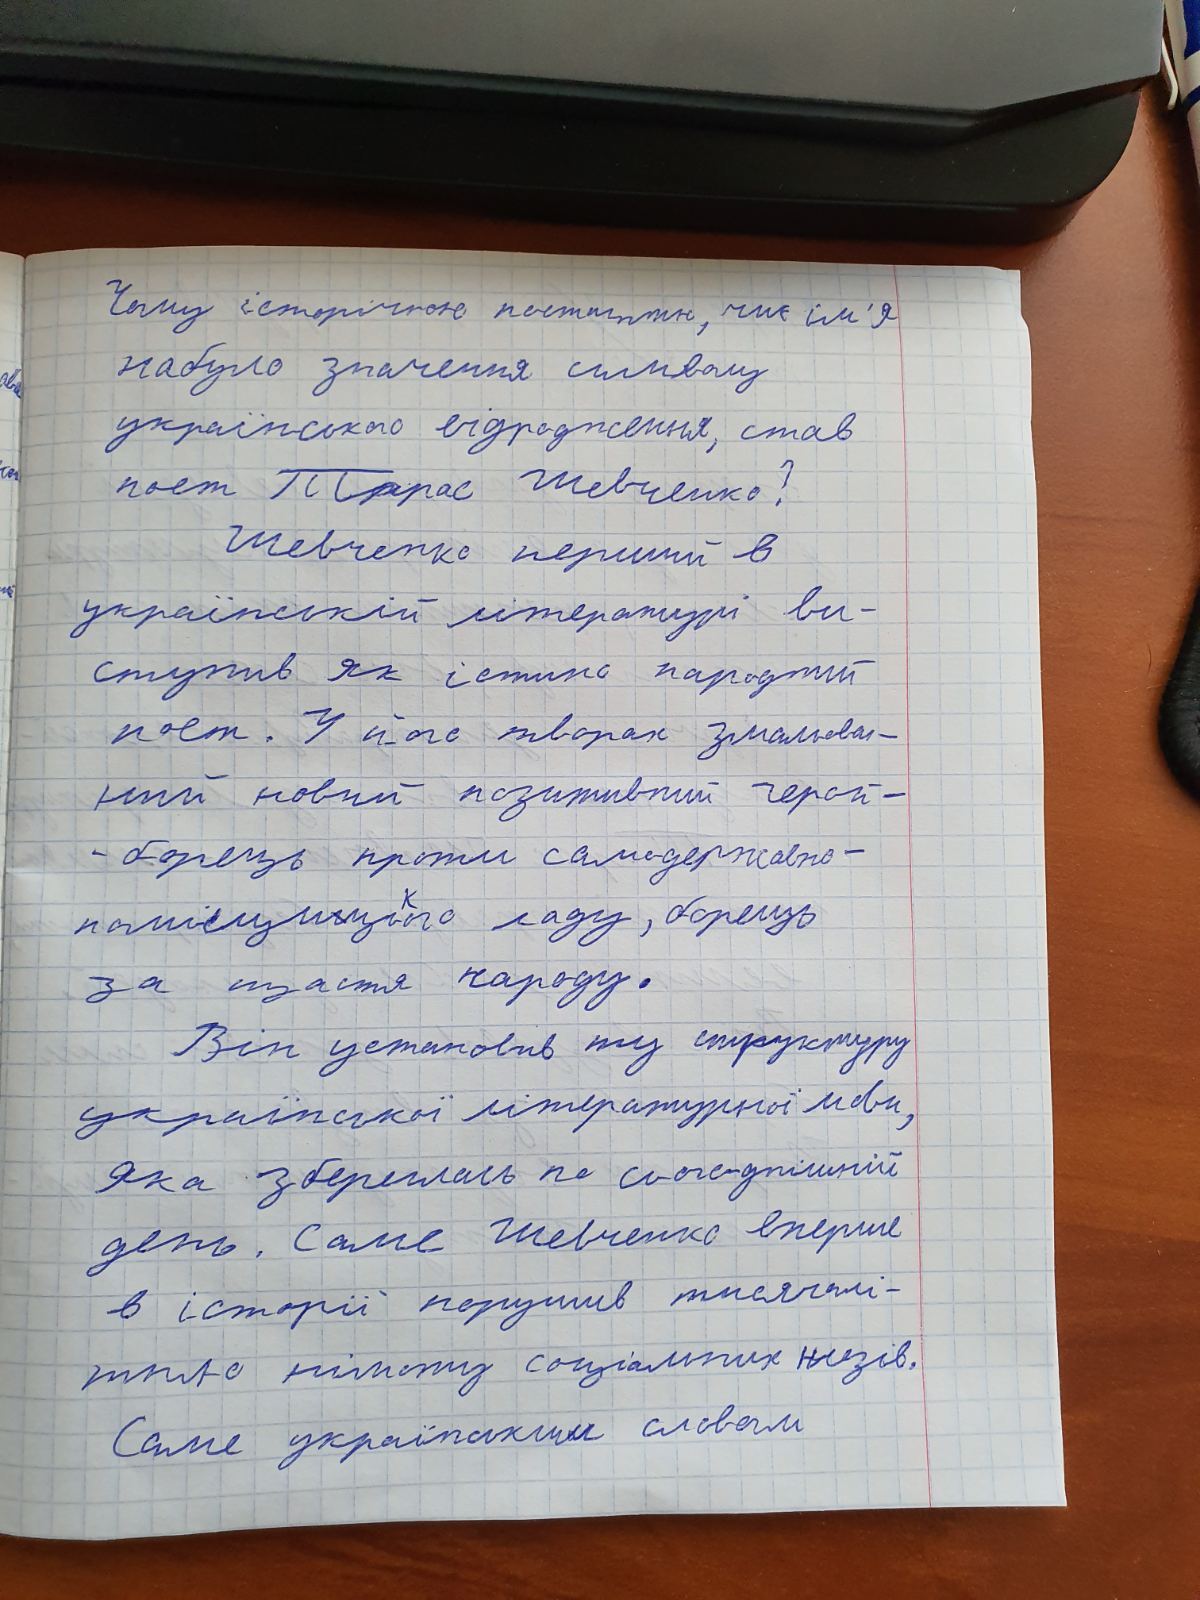 Чому історичною постаттю, чиє ім'я
набуло значення символу
українського відродження, став
поет Тарас Шевченко?
Шевченко перший в
українській літературі ви-
ступив як істино народний
поет. У його творах змальова-
ний новий позитивний герой-
-борець проти самодержавно-
поміщицького ладу, борець
за щастя народу.
Він установив ту структуру
української літературної мови,
яка збереглась по сьогоднішній
день. Саме Шевченко вперше
в історії порушив тисячолі-
тню німоту соціальних низів.
Саме українським словом